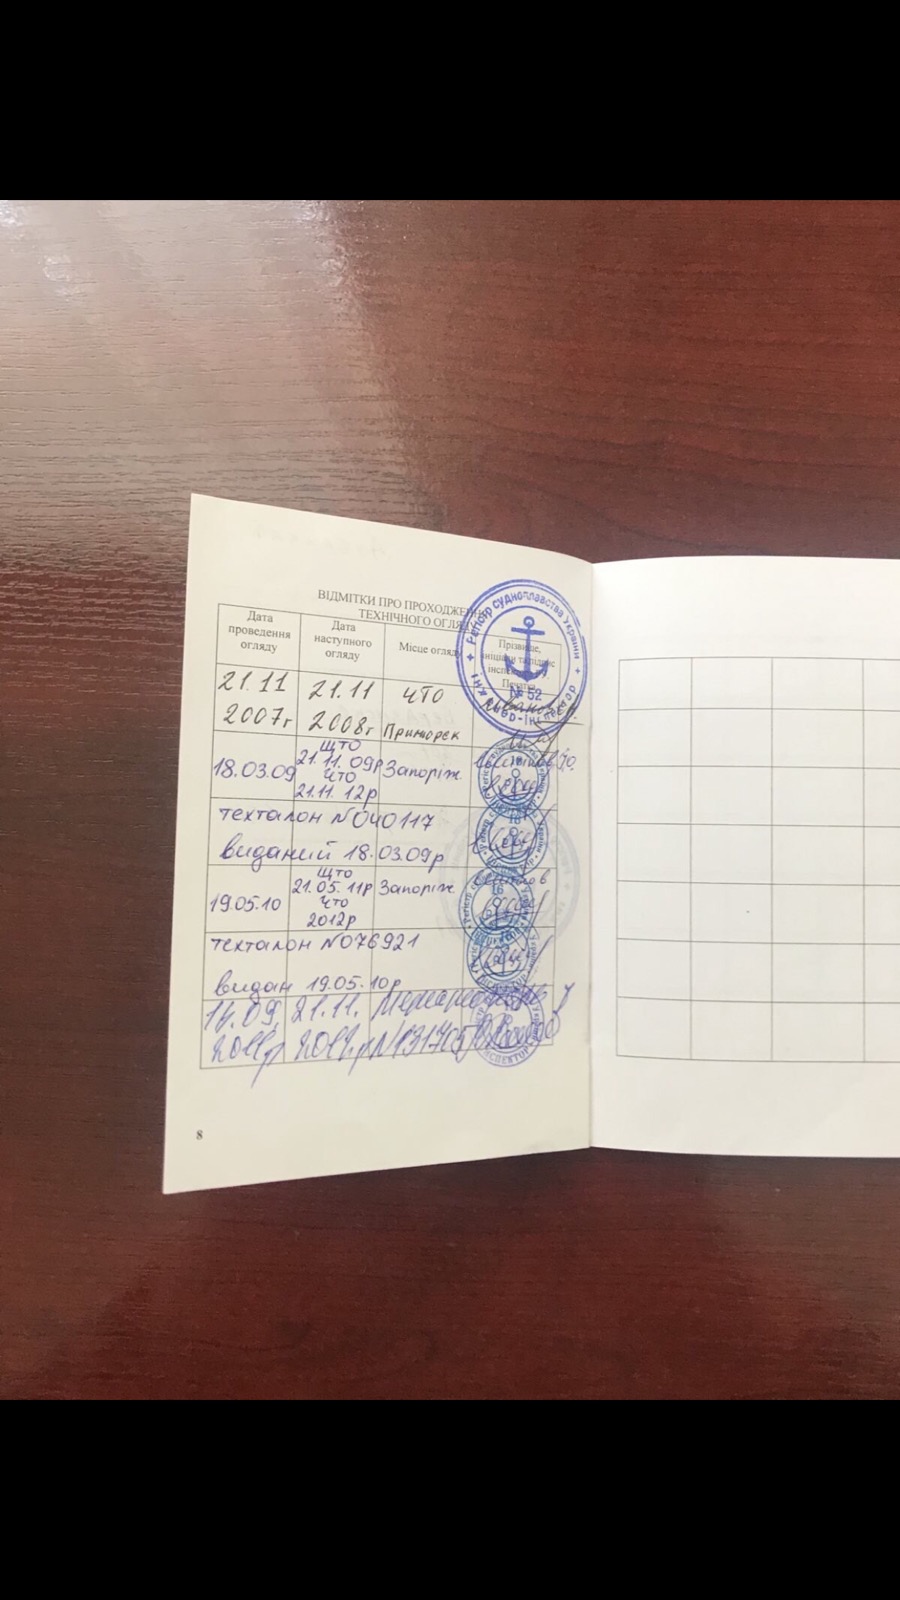 ВІДМІТКИ ПРО ПРОХОДЖЕННЯ
ТЕХНІЧНОГО ОГЛЯДУ
Дата проведення огляду
Дата наступного огляду
Місце огляду
Прізвище, ініціали та підпис
Печатка
Регістр судноплавства України
№ 52
21.11 21.11 ЧТО
2007г 2008г Приморск
ЩТО
18.03.09 21.11.09р Запоріж.
ЧТО
21.11.12р
техталон №040117
виданий 18.03.09р
ЩТО
19.05.10 21.05.11р Запоріж
ЧТО
2012р
техталон №076921
видан 19.05.10р
14.09. 21.11.
2011р 2012р №131705
8